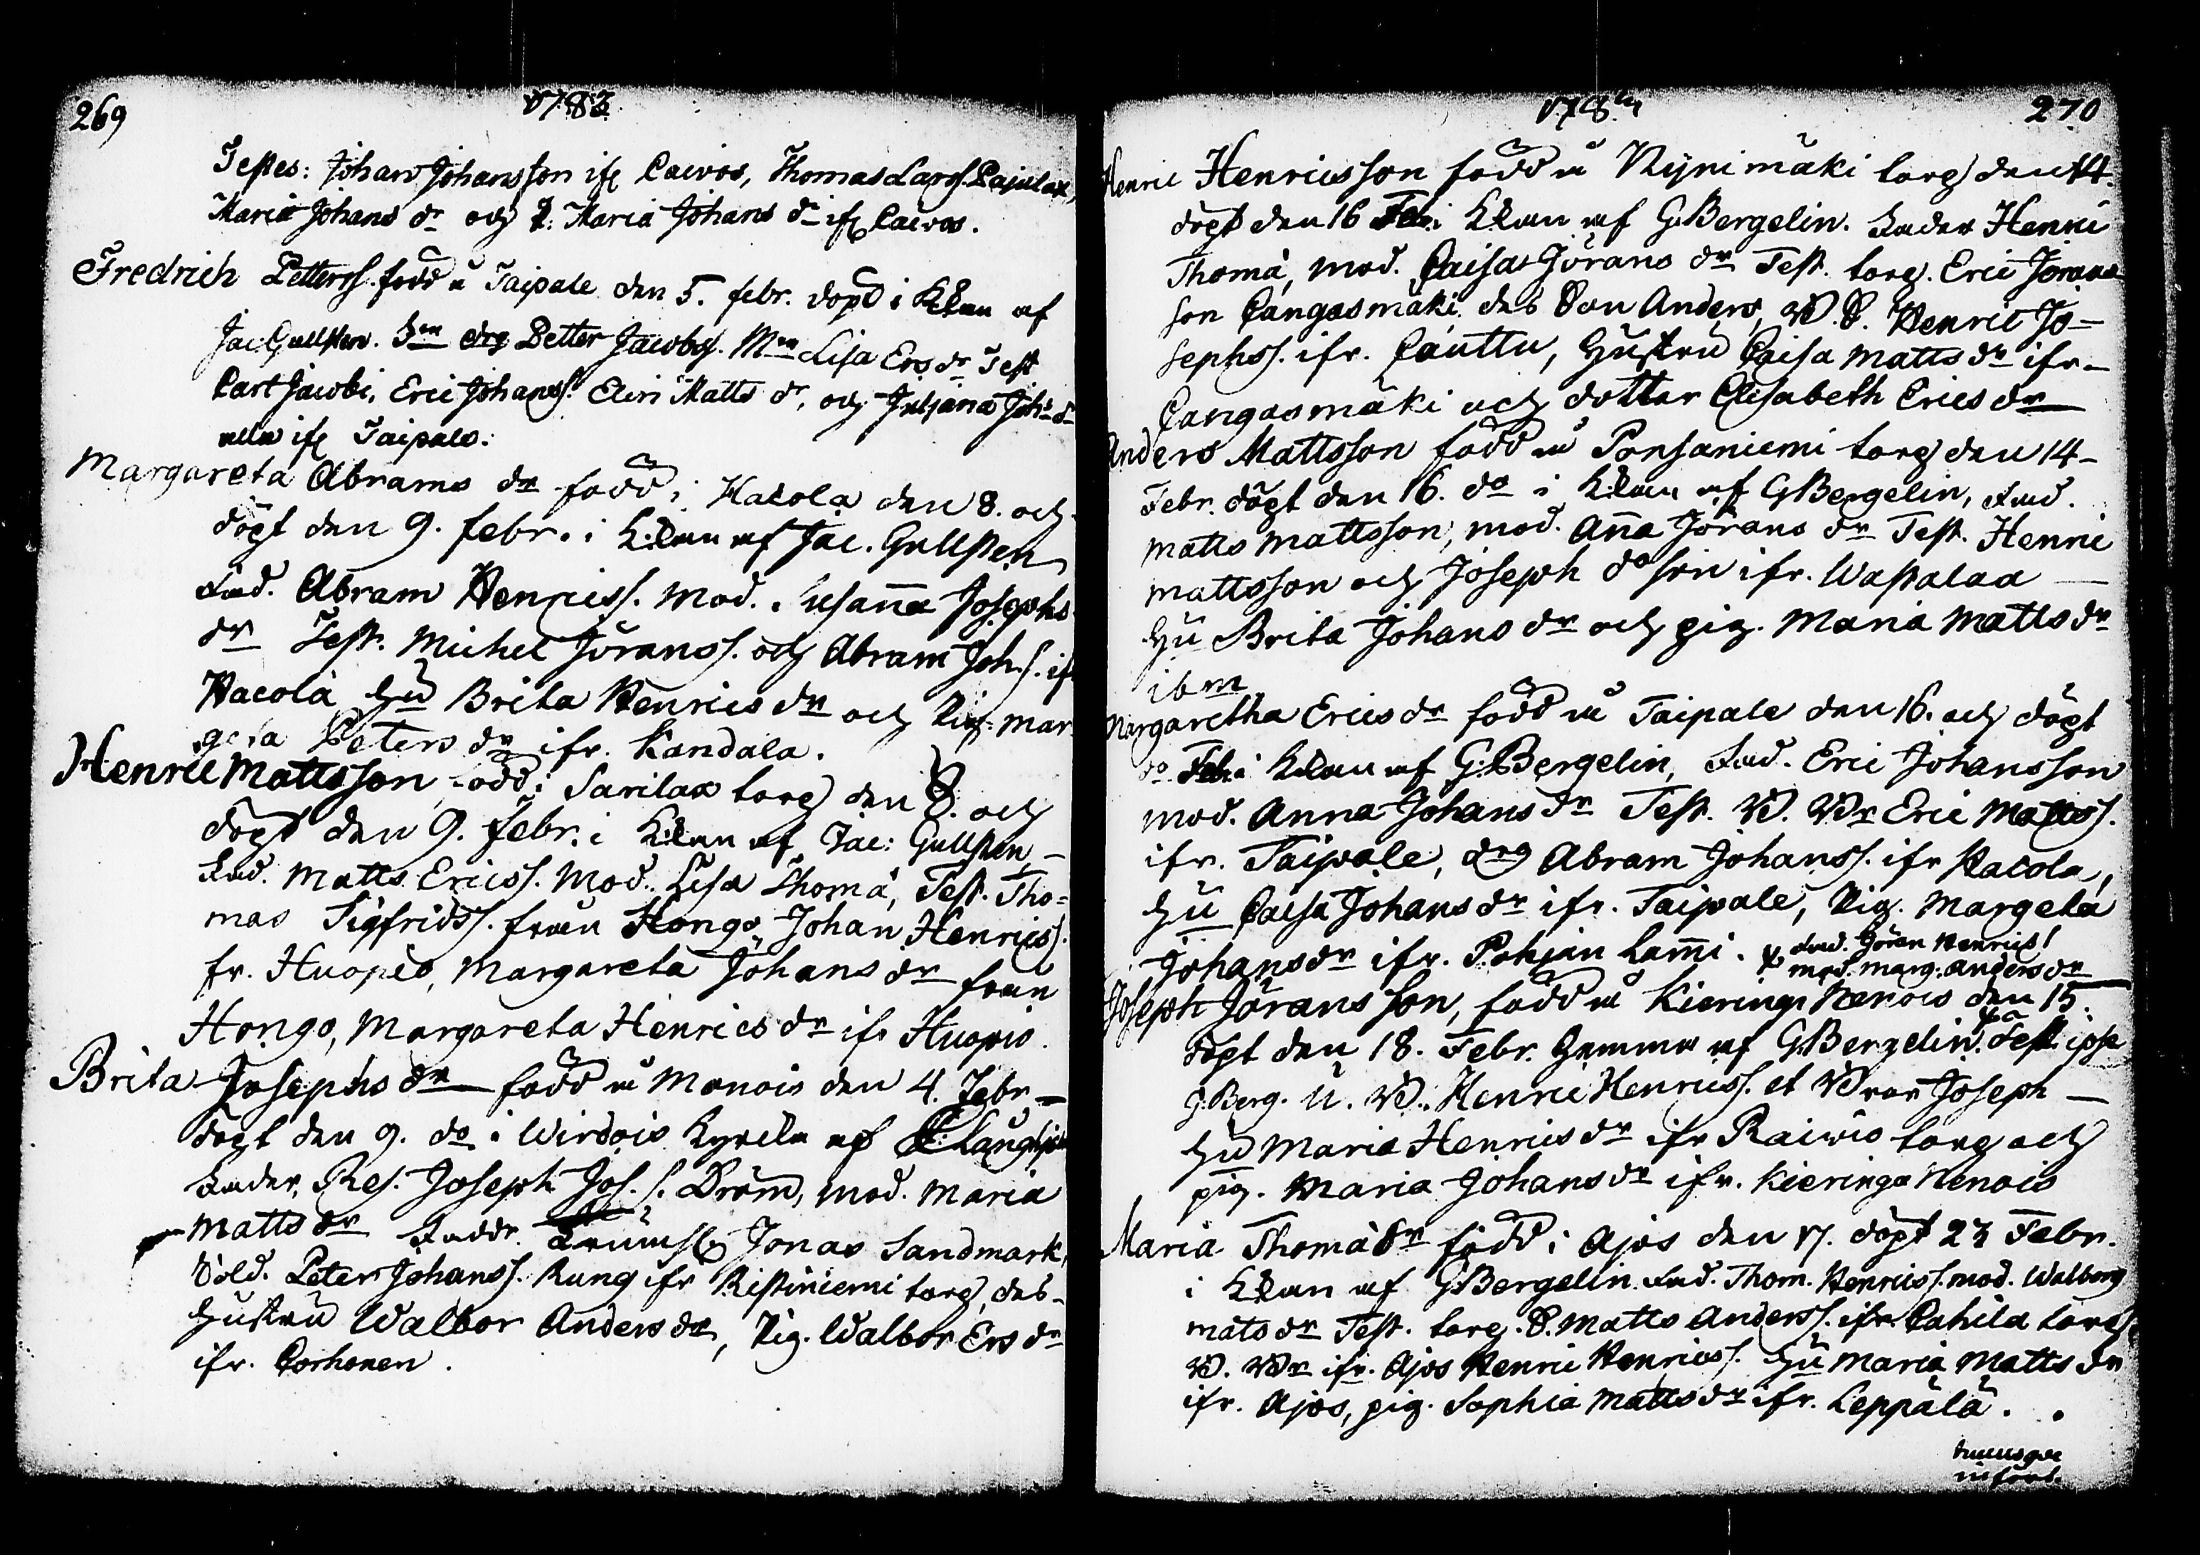 269
1783
Testes: Johan Johansson ifr Caivos, Thomas Larss. Pajulax,
Maria Johans dr och P. Maria Johans dr ifr Caivos.
Fredrich Petterss. född å Taipale den 5. febr. döpt i Kkan af
Jac Gullsten. Drg Petter Jacobss. Lisa Ers dr Test
Carl Jacobi, Eric Johanss. Elin Matts dr, och Juliana Joh. dr
alla ifr Taipale.
Margareta Abrams dr född i Hacola den 8. och
döpt den 9. febr. i Kkan af Jac. Gullsten
Fad. Abram Henricss. Mod. Susanna Josephs
dr Test. Michel Jöranss. och Abram Joh. s. ifr
Hacola Hu Brita Henrics dr och Pig. Mar
geta Peters dr ifr. Kandala.
Henric Mattsson född i Sarilax torp den 8. och
döpt den 9. Febr. i Kkan af Jac: Gullsten
Fad. Matts Ericss. Mod. Lisa Thomä, Test. Tho-
mas Sigfridss. från Hongo, Johan Henricss.
fr. Huopio, Margareta Johans dr från
Hongo, Margareta Henrics dr ifr Huopio.
Brita Josephs dr född å Monois den 4. Febr
döpt den 9. do i Wirdois Kyrcka af
Fader, Res. Joseph Jos. s. Dröm, mod. Maria
Matts dr Fadd. Jonas Sandmark,
Sold. Peter Johanss. Kung ifr Ristiniemi torp, das
Hustru Walbor Anders dr, Pig. Walbor Ers dr
ifr. Corhonen.
1784
270
Henric Henricsson född å Nynimäki torp den 14.
döpt den 16 Feb. i Kkan af G. Bergelin. Fader Henric
Thomä, mod. Caisa Jörans dr Test. torp. Eric Jörans
son Cangasmäki des Son Anders, W. S. Henric Jo-
sephss. ifr. Cauttu, Hustru Caisa Matts dr ifr
Cangasmäki och dotter Elisabeth Erics dr
Anders Mattsson född å Ponsaniemi torp den 14
Febr. döpt den 16. do i Kkan af G Bergelin, Fad.
Matts Mattsson, mod. Anna Jörans dr Test. Henric
Mattsson och Joseph do son ifr. Waskalax
Hu Brita Johans dr och pig. Maria Matts dr
ibm
Margaretha Erics dr född å Taipale den 16. och döpt
do Feb. i Kkan af G. Bergelin, Fad. Eric Johansson
mod. Anna Johans dr Test. W. Wr Eric Matss.
ifr. Taipale, drg Abram Johanss. ifr Hacola,
Hu Caisa Johans dr ifr. Taipale, Pig. Margeta
Johans dr ifr. Pohjan Lammi. Fad. Jöran Henricss.
mod. Marg. Anders dr
Joseph Jöransson, född å Kieringa Nenois den 15.
döpt den 18. Febr. hemma af G. Bergelin. Test. ipse
G. Berg. U. W. Henric Henricss. et Wror Joseph
Hu Maria Henrics dr ifr Raiwio torp och
pig. Maria Johans dr ifr. Kieringa Nenois
Maria Thomä dr född i Ajos den 17. döpt 23 Febr.
i Kkan af G Bergelin. Fad. Thom. Henricss. mod. Walborg
Mats dr Test. torp. S. Matts Anderss. ifr. Cahila torp
W. Wr ifr. Ajos Henric Henricss. Hu Maria Matts dr
ifr. Ajos, pig. Sophia Matts dr ifr. Leppälä.
införd.